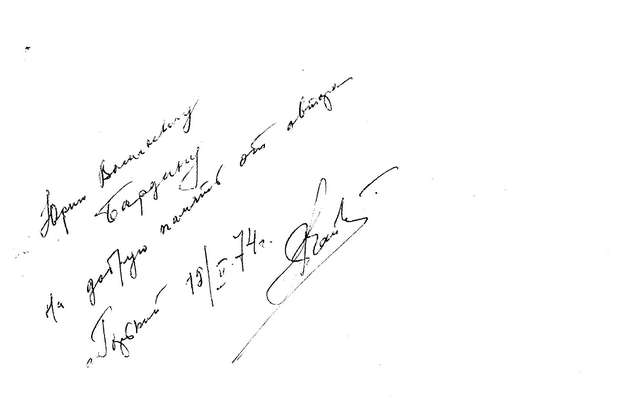 Юрию Васильевичу
Бардину
на добрую память от автора
г. Горький 19/II.74 г.